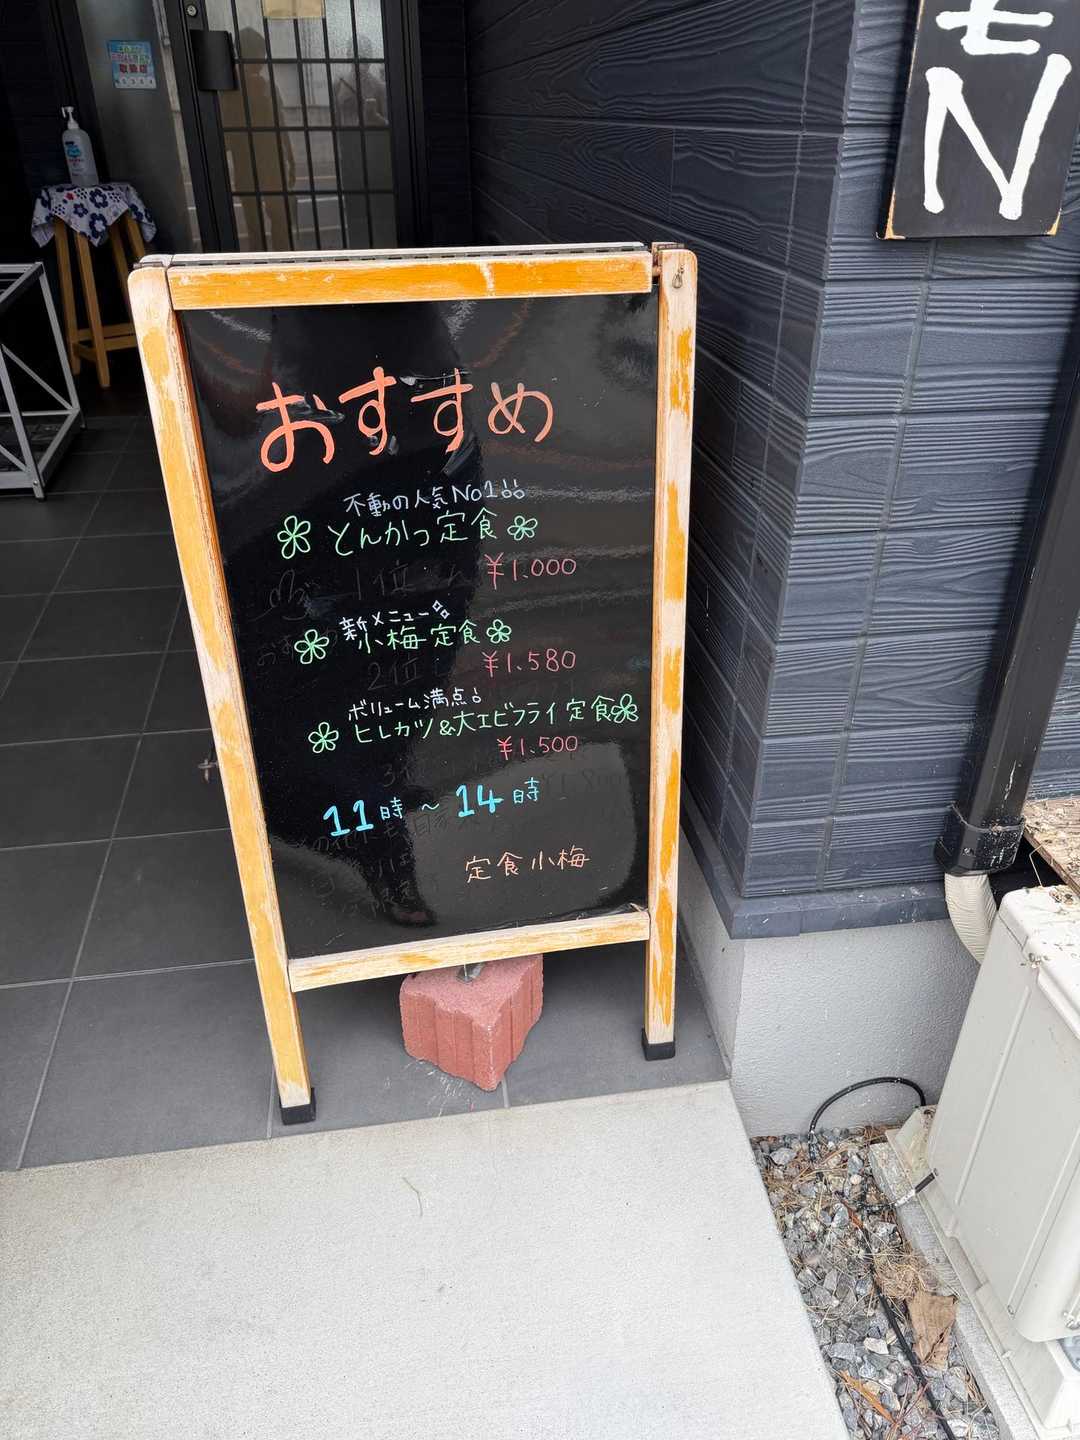 おすすめ
不動の人気No1!!
とんかつ定食
¥1.000
1位
新メニュー
小梅定食
2位
¥1.580
ボリューム満点!
ヒレカツ&大エビフライ定食
¥1.500
3位
11時~14時
定食小梅
モ
N